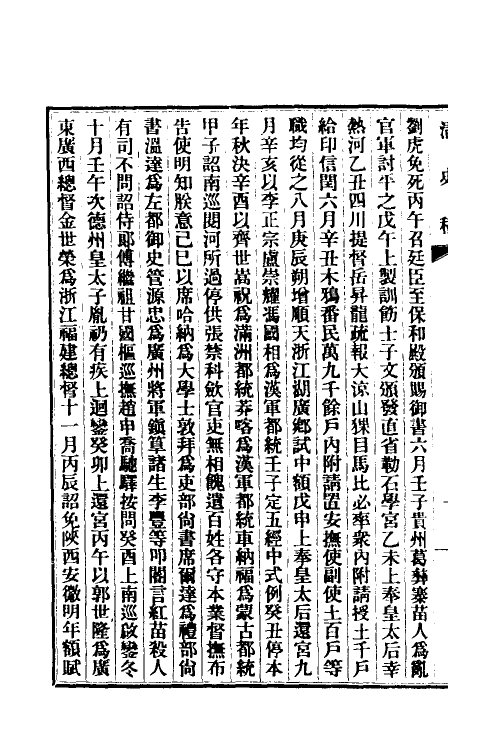 清史稿
劉虎免死丙午召廷臣至保和殿頒賜御書六月壬子貴州葛彝寨苗人為亂
官軍討平之戊午上製訓飭士子文頒發直省勒石學宮乙未上奉皇太后幸
熱河乙丑四川提督岳昇龍疏報大涼山猓目馬比必率衆內附請授土千戶
給印信閏六月辛丑木鴉番民萬九千餘戶內附請置安撫使副使土百戶等
職均從之八月庚辰朔增順天浙江湖廣鄉試中額戊申上奉皇太后還宮九
月辛亥以李正宗盧崇耀馮國相為漢軍都統壬子定五經中式例癸丑停本
年秋決辛酉以齊世嵩祝為滿洲都統莽喀為漢軍都統車納福為蒙古都統
甲子詔南巡閱河所過停供張禁科斂官吏無相餽遺百姓各守本業督撫布
告使明知朕意己巳以席哈納為大學士敦拜為吏部尚書席爾達為禮部尚
書溫達為左都御史管源忠為廣州將軍鎮草諸生李豐等叩閽言紅苗殺人
有司不問詔侍郎傅繼祖甘國樞巡撫趙申喬馳驛按問癸酉上南巡啟鑾冬
十月壬午次德州皇太子胤礽有疾上迴鑾癸卯上還宮丙午以郭世隆為廣
東廣西總督金世榮為浙江福建總督十一月丙辰詔免陝西安徽明年額賦